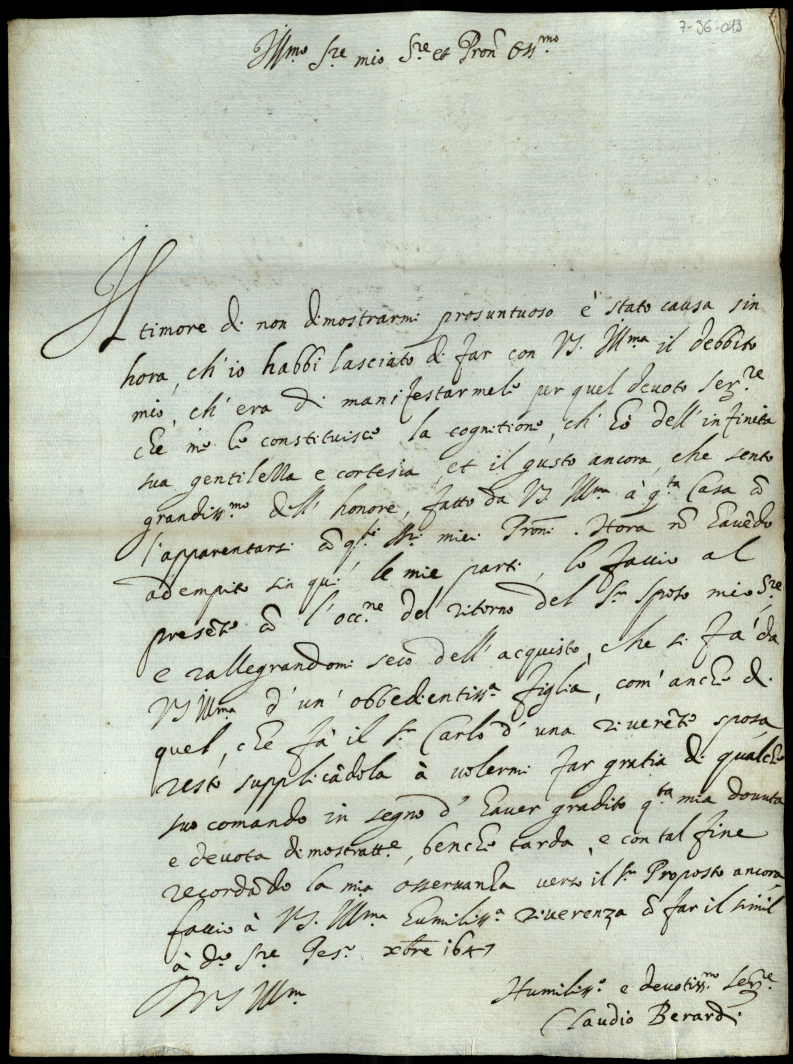 7-36-013
Ill.mo S.re mio S.re et Pron Oss.mo
Il timore di non dimostrarmi prosuntuoso è stato causa sin
hora, ch'io habbi lasciato di far con VS. Ill.ma il debbito
mio, ch'era di manifestarmele per quel devoto Ser.re
che me le constituisce la cognitione, ch'hò dell'infinita
sua gentilezza e cortesia, et il gusto ancora, che sento
grandiss.mo dell'honore, fatto da VS. Ill.ma à q.ta Casa cõ
l'apparentarsi cõ q.ti miei Pròni. Hora nõ havẽdo
adempito sin quì le mie parti, lo faccio al
presẽte cõ l'occ.ne del ritorno del S.r sposo mio S.re
e rallegrandomi seco dell'acquisto, che si fà da
VS Ill.ma d'un'obbedientiss.a figlia, com'anche di
quel, che fà il S.r Carlo d'una riverẽte sposa
resto supplicãdola à volermi far gratia di qualche
suo comando in segno d'haver gradito q.ta mia dovuta
e devota dimostratt.e, benche tarda, e con tal fine
recordãdo la mia osservanza verso il S.r Proposto ancora
faccio à VS. Ill.ma humiliss.a riverenza cõ far il simil
à d.o S.re xbre 1647
VS Ill.ma
Humiliss.o e devotiss.mo Ser.re
Claudio Berardi